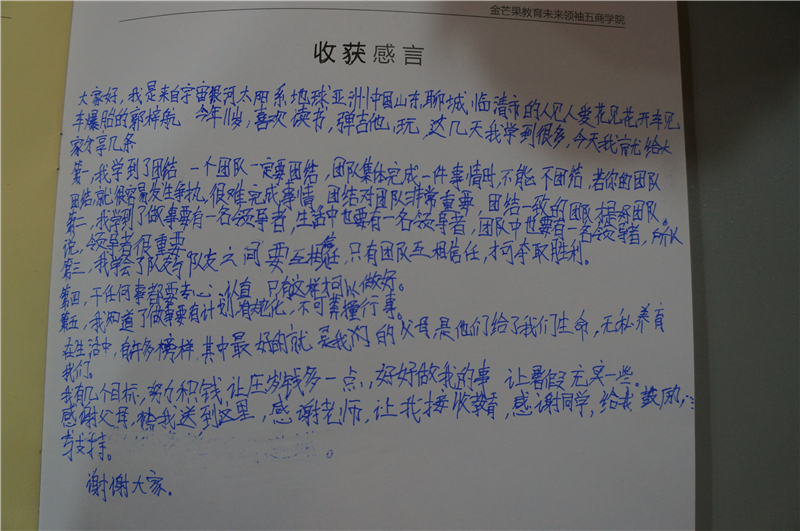 金芒果教育未来领袖五商学院
收获感言
大家好，我是来自宇宙银河太阳系地球亚洲中国山东聊城临清市的人见人爱花见花开车见
车爆胎的郭梓航 今年11岁，喜欢读书，弹吉他，玩，这几天我学到很多，今天我就给大
家分享几条
第一，我学到了团结，一个团队一定要团结，团队集体完成一件事情时，不能不团结，若你的团队
团结就很容易发生争执，很难完成事情，团结对团队非常重要，团结一致的团队才是好团队。
第二，我学到了做事要有一名领导者，生活中也要有一名领导者，团队中也要有一名领导者，所以
说，领导者很重要
第三，我学会了队友与队友之间要互相信任，只有团队互相信任，才可夺取胜利。
第四，干任何事都要专心，认真，只有这样才可以做好。
第五，我知道了做事要有计划，有变化，不可莽撞行事。
在生活中，有许多榜样，其中最好的就是我们的父母，是他们给了我们生命，无私养育
我们。
我有几个目标，努力积钱，让压岁钱多一点，好好做我的事，让暑假充实一些。
感谢父母，给我送到这里，感谢老师，让我接收教育，感谢同学，给我鼓励，
与支持。
谢谢大家。